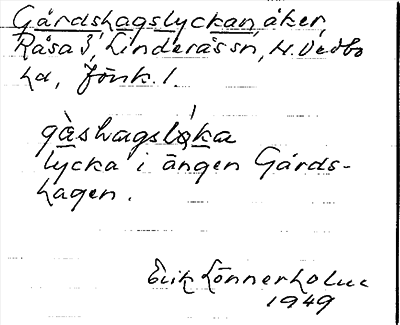 Gårdshagslyckan åker
Råsa 3, Linderås sn, N. Vedbo
hd, Jönk. l.
gàshagsloka
lycka i ängen Gårds-
hagen.
Erik Lönnerholm
1949